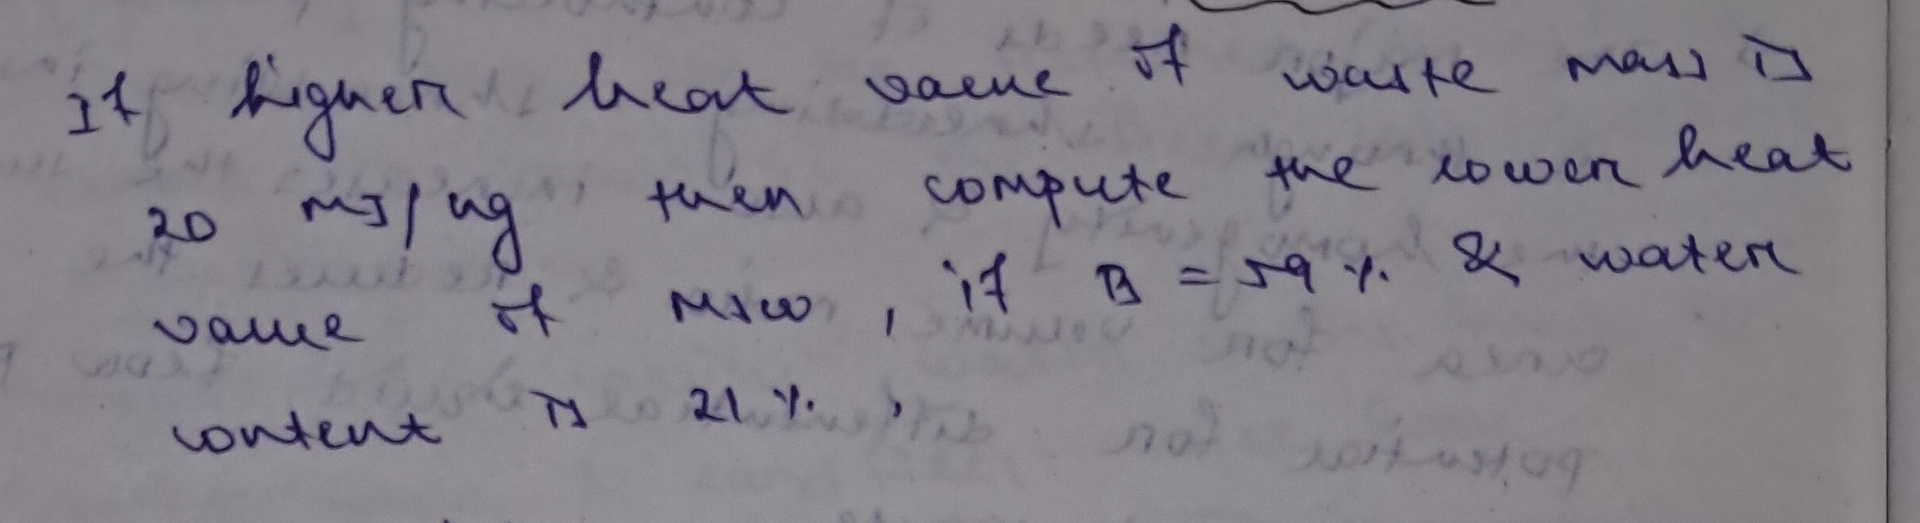 If higher heat value of waste mass is
20 MJ/kg then compute the lower heat
value of MSW, if B = 59 % & water
content is 21 %,